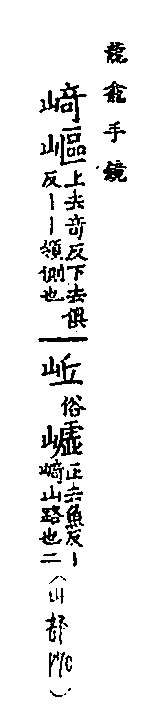 龍龕手鏡
崎嶇上去奇反下去俱反丨丨傾側也丨岴俗𡾋正去魚反丨崎山路也二(山部170)